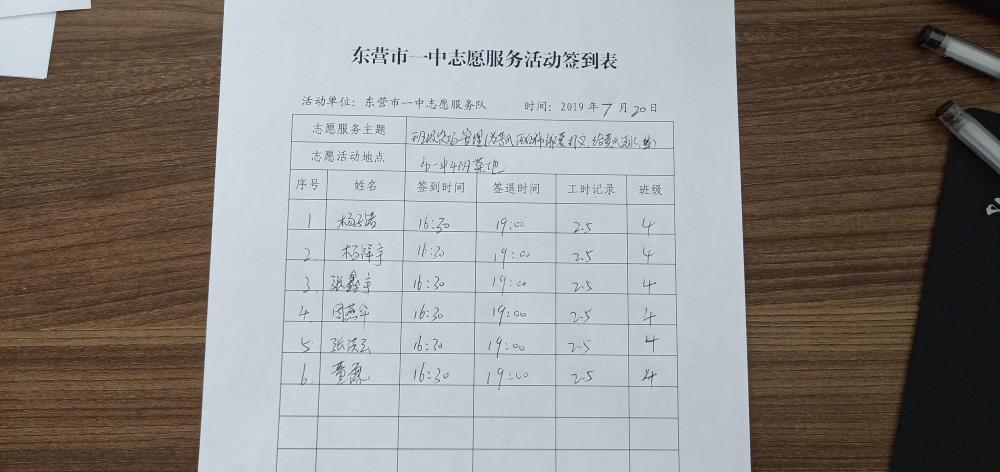 东营市一中志愿服务活动签到表
活动单位：东营市一中志愿服务队 时间：2019年7月20日
志愿服务主题 班级农场管理
志愿活动地点 市一中4班菜地
序号 姓名 签到时间 签退时间 工时记录 班级
1 16:30 19:00 2.5 4
2. 杨祥宇 16:30 19:00 2.5 4
3. 张鑫宇 16:30 19:00 2.5 4
4. 周燕华 16:30 19:00 2.5 4
5. 张洪云 16:30 19:00 2.5 4
6. 董磊 16:30 19:00 2.5 4